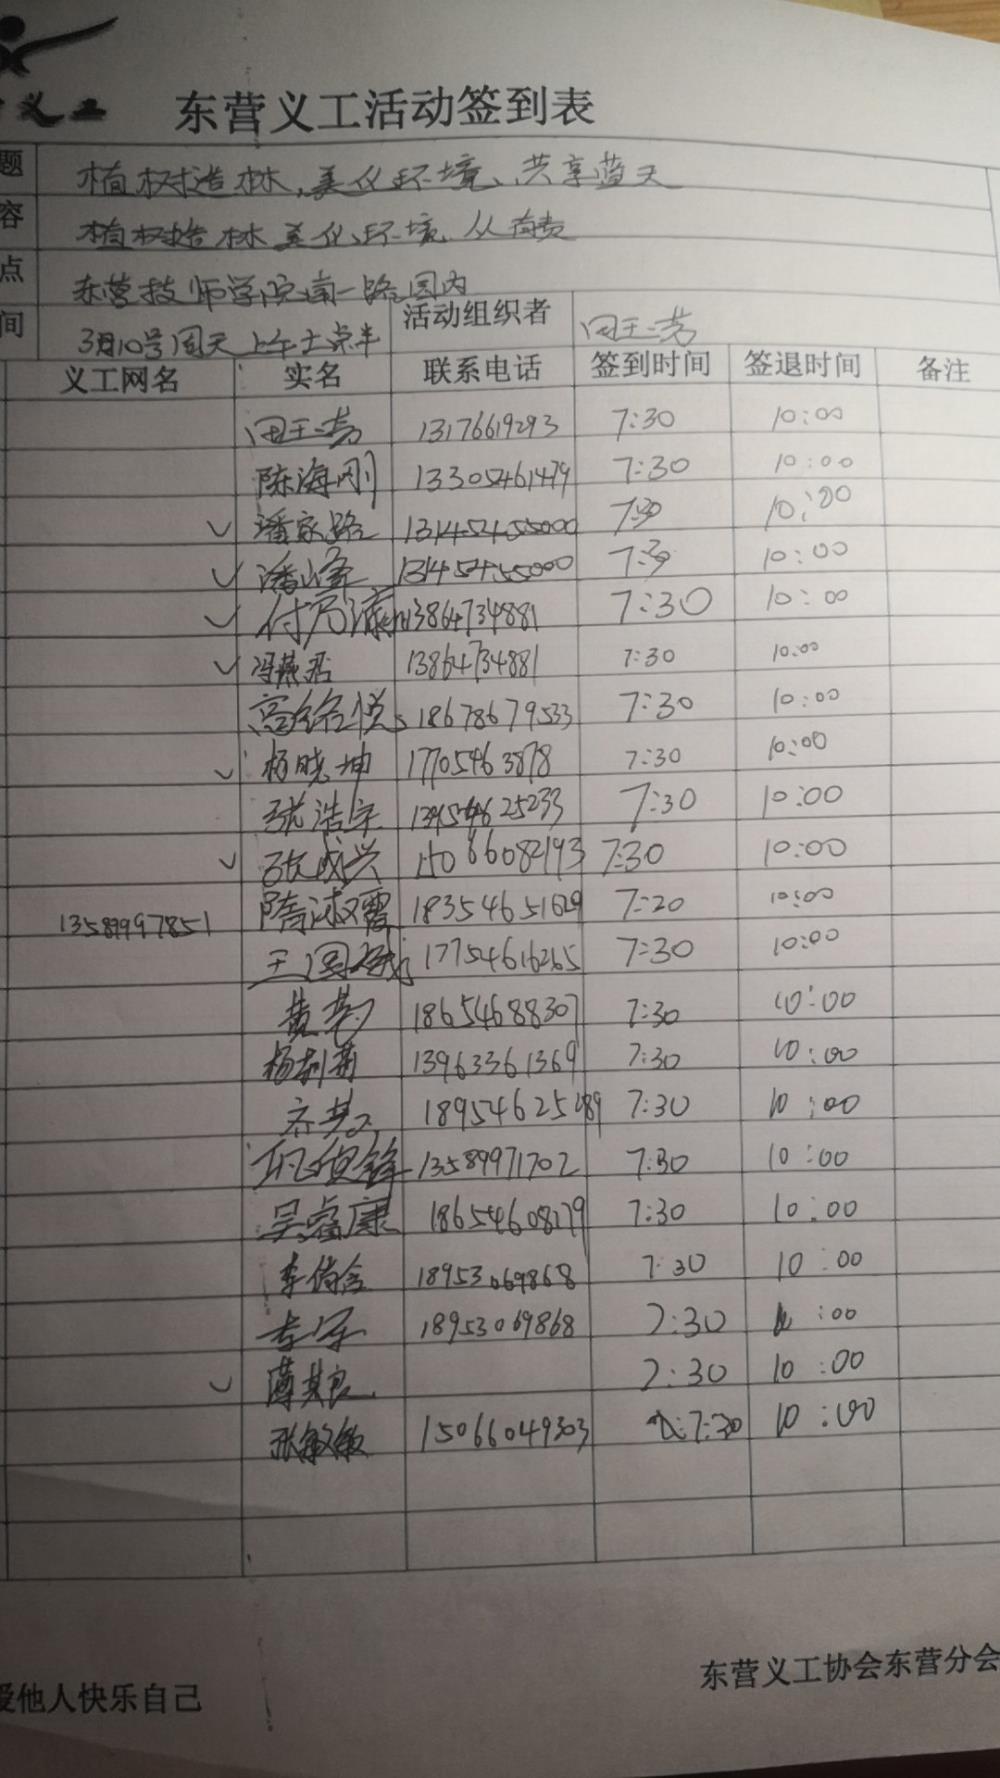 义工
东营义工活动签到表
题 植树造林,美化环境、共享蓝天
容 植树造林 美化环境、从
点 东营技师学院南一路园内
间 3月10号周天上午七点半 活动组织者
义工网名 实名 联系电话 签到时间 签退时间 备注
13176619293 7:30 10:00
陈海刚 13305461479 7:30 10:00
✓ 潘家路 7:30 10:00
✓ 潘峰 7:30 10:00
✓ 13864734881 7:30 10:00
✓ 冯燕君 13864734881 7:30 10:00
高绘悦 18678679533 7:30 10:00
✓ 杨晓坤 17705463878 7:30 10:00
张浩宇 7:30 10:00
✓ 张成兴 15066082193 7:30 10:00
隋淑霞 18354651629 7:20 10:00
王国 17754616265 7:30 10:00
黄 18654688307 7:30 10:00
杨 13963361369 7:30 10:00
齐 7:30 10:00
13589971702 7:30 10:00
吴睿康 18654608279 7:30 10:00
李 18953069868 7:30 10:00
18953069868 7:30 :00
✓ 薄其良 7:30 10:00
张敏敏 15066049303 7:30 10:00
东营义工协会东营分会
爱他人快乐自己